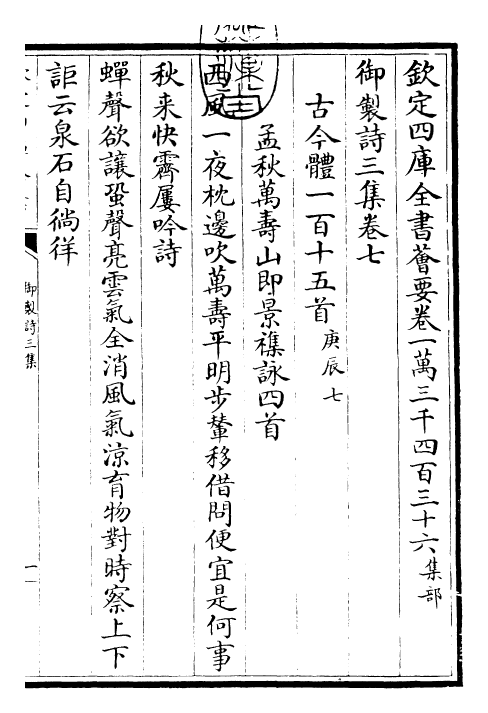 欽定四庫全書薈要卷一萬三千四百三十六集部
御製詩三集卷七
古今體一百十五首庚辰七
孟秋萬壽山即景襍詠四首
西風一夜枕邊吹萬壽平明步輦移借問便宜是何事
秋来快霽屢吟詩
蟬聲欲讓蛩聲亮雲氣全消風氣涼育物對時察上下
詎云泉石自徜徉
御製詩三集